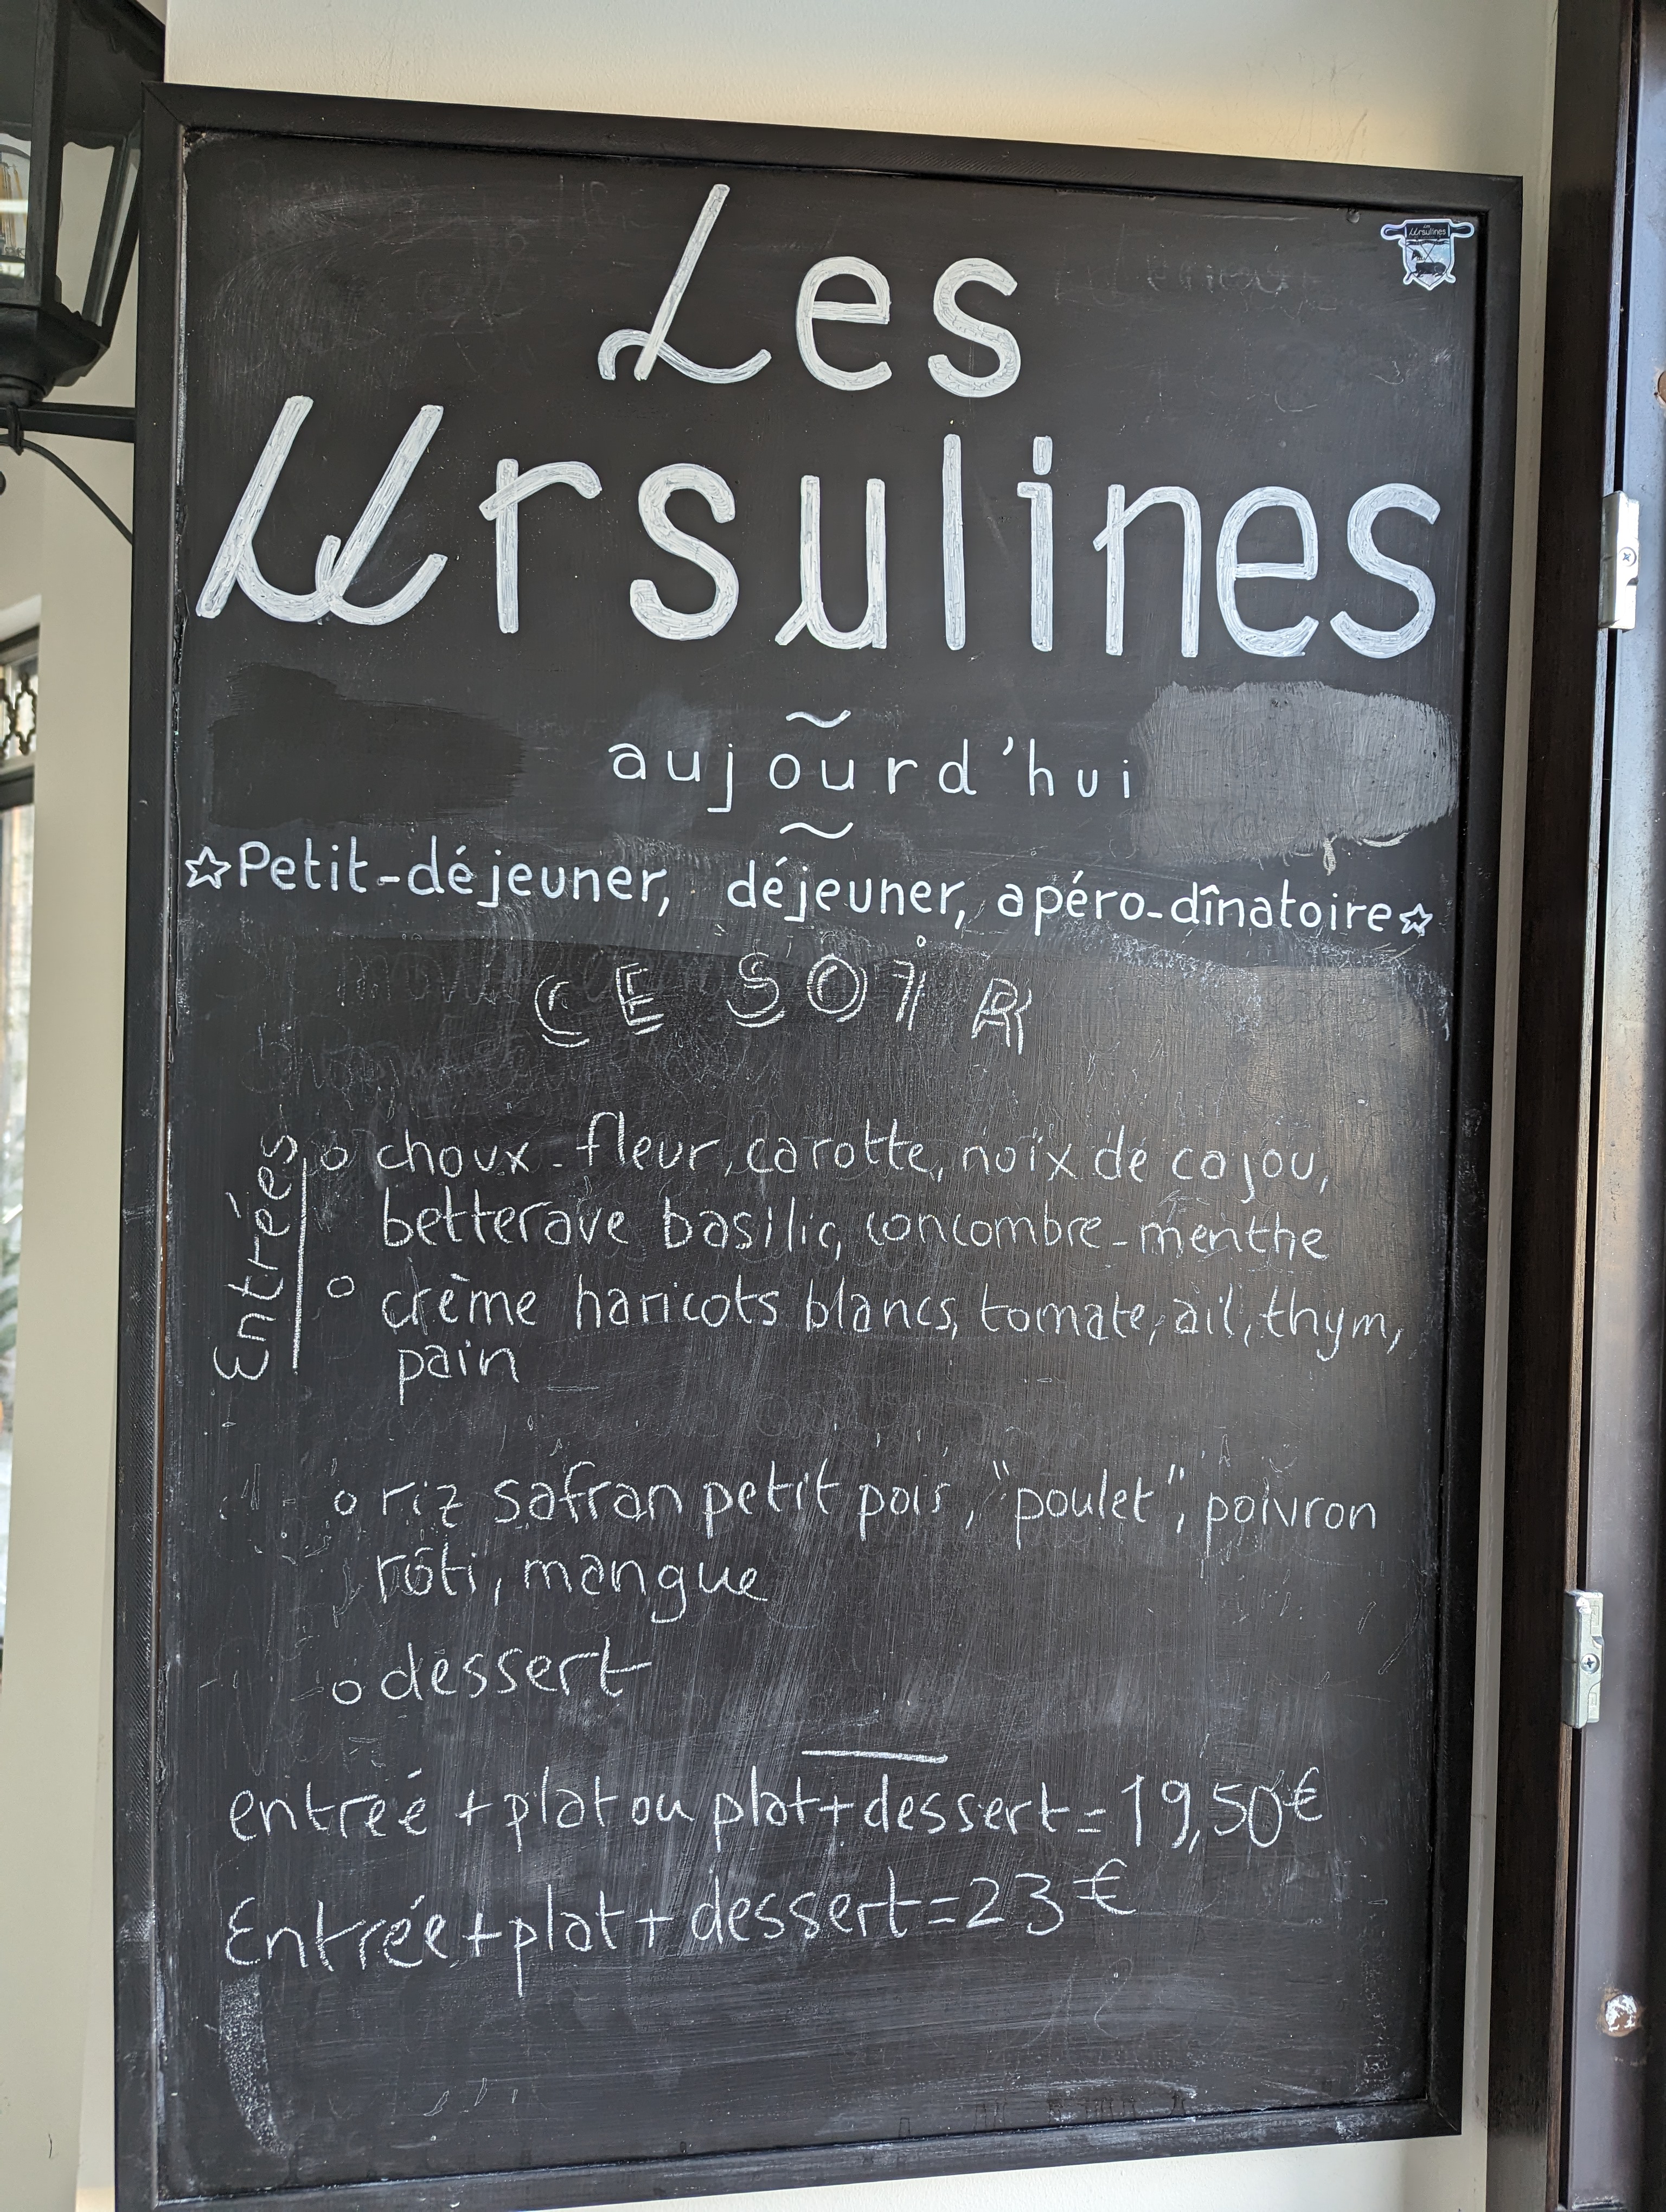 Les
Ursulines
Les
Ursulines
~
aujourd'hui
~
☆Petit-déjeuner, déjeuner, apéro-dînatoire☆
CE SOIR
Entrées
o choux-fleur, carotte, noix de cajou,
betterave basilic, concombre-menthe
o crème haricots blancs, tomate, ail, thym,
pain
o riz safran petit pois, "poulet", poivron
rôti, mangue
o dessert
entreé + plat ou plat + dessert = 19,50€
Entrée + plat + dessert = 23€